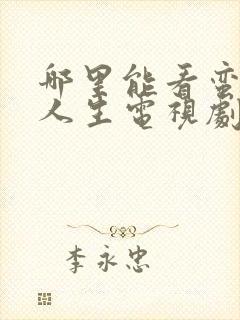 哪里能看蛮
人生電視劇
李永忠